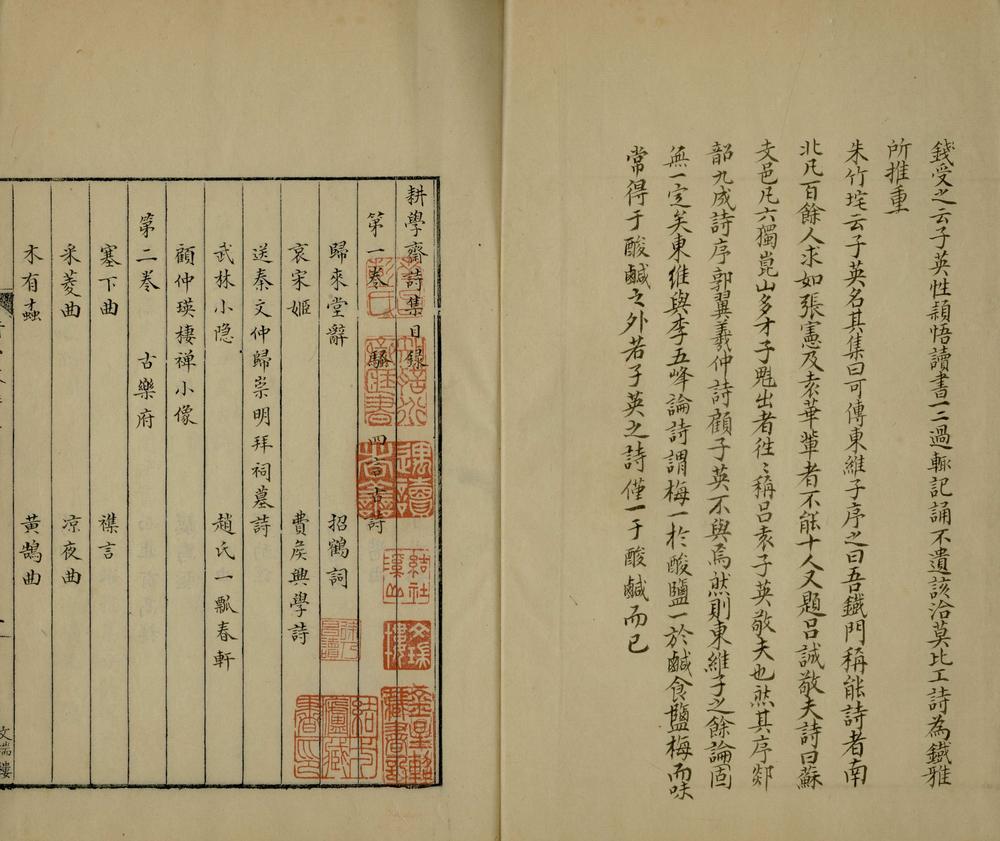 錢受之云子英性穎悟讀書一二過輒記誦不遺該洽莫比工詩為鐵雅
所推重
朱竹垞云子英名其集曰可傳東維子序之曰吾鐵門稱能詩者南
北凡百餘人求如張憲及袁華輩者不能十人又題呂誠敬夫詩曰蘇
支邑凡六獨崑山多才子䰟出者徃〻稱呂袁子英敬夫也然其序郯
韶九成詩序郭翼羲仲詩顧子英不與焉然則東維子之餘論固
無一定矣東維與李五峰論詩謂梅一於酸鹽一於鹹食鹽梅而味
常得于酸鹹之外若子英之詩僅一于酸鹹而已
耕學齋詩集目錄
第一卷 騷 四言古詩
歸來堂辭 招鶴詞
哀宋姬 費侯興學詩
送秦文仲歸崇明拜祠墓詩
武林小隱 趙氏一瓢春軒
顧仲瑛棲禅小像
第二卷 古樂府
塞下曲 襍言
采菱曲 凉夜曲
木有蟲 黃鵠曲
文瑞樓
結社溪山
文瑞樓
金星軺藏書記